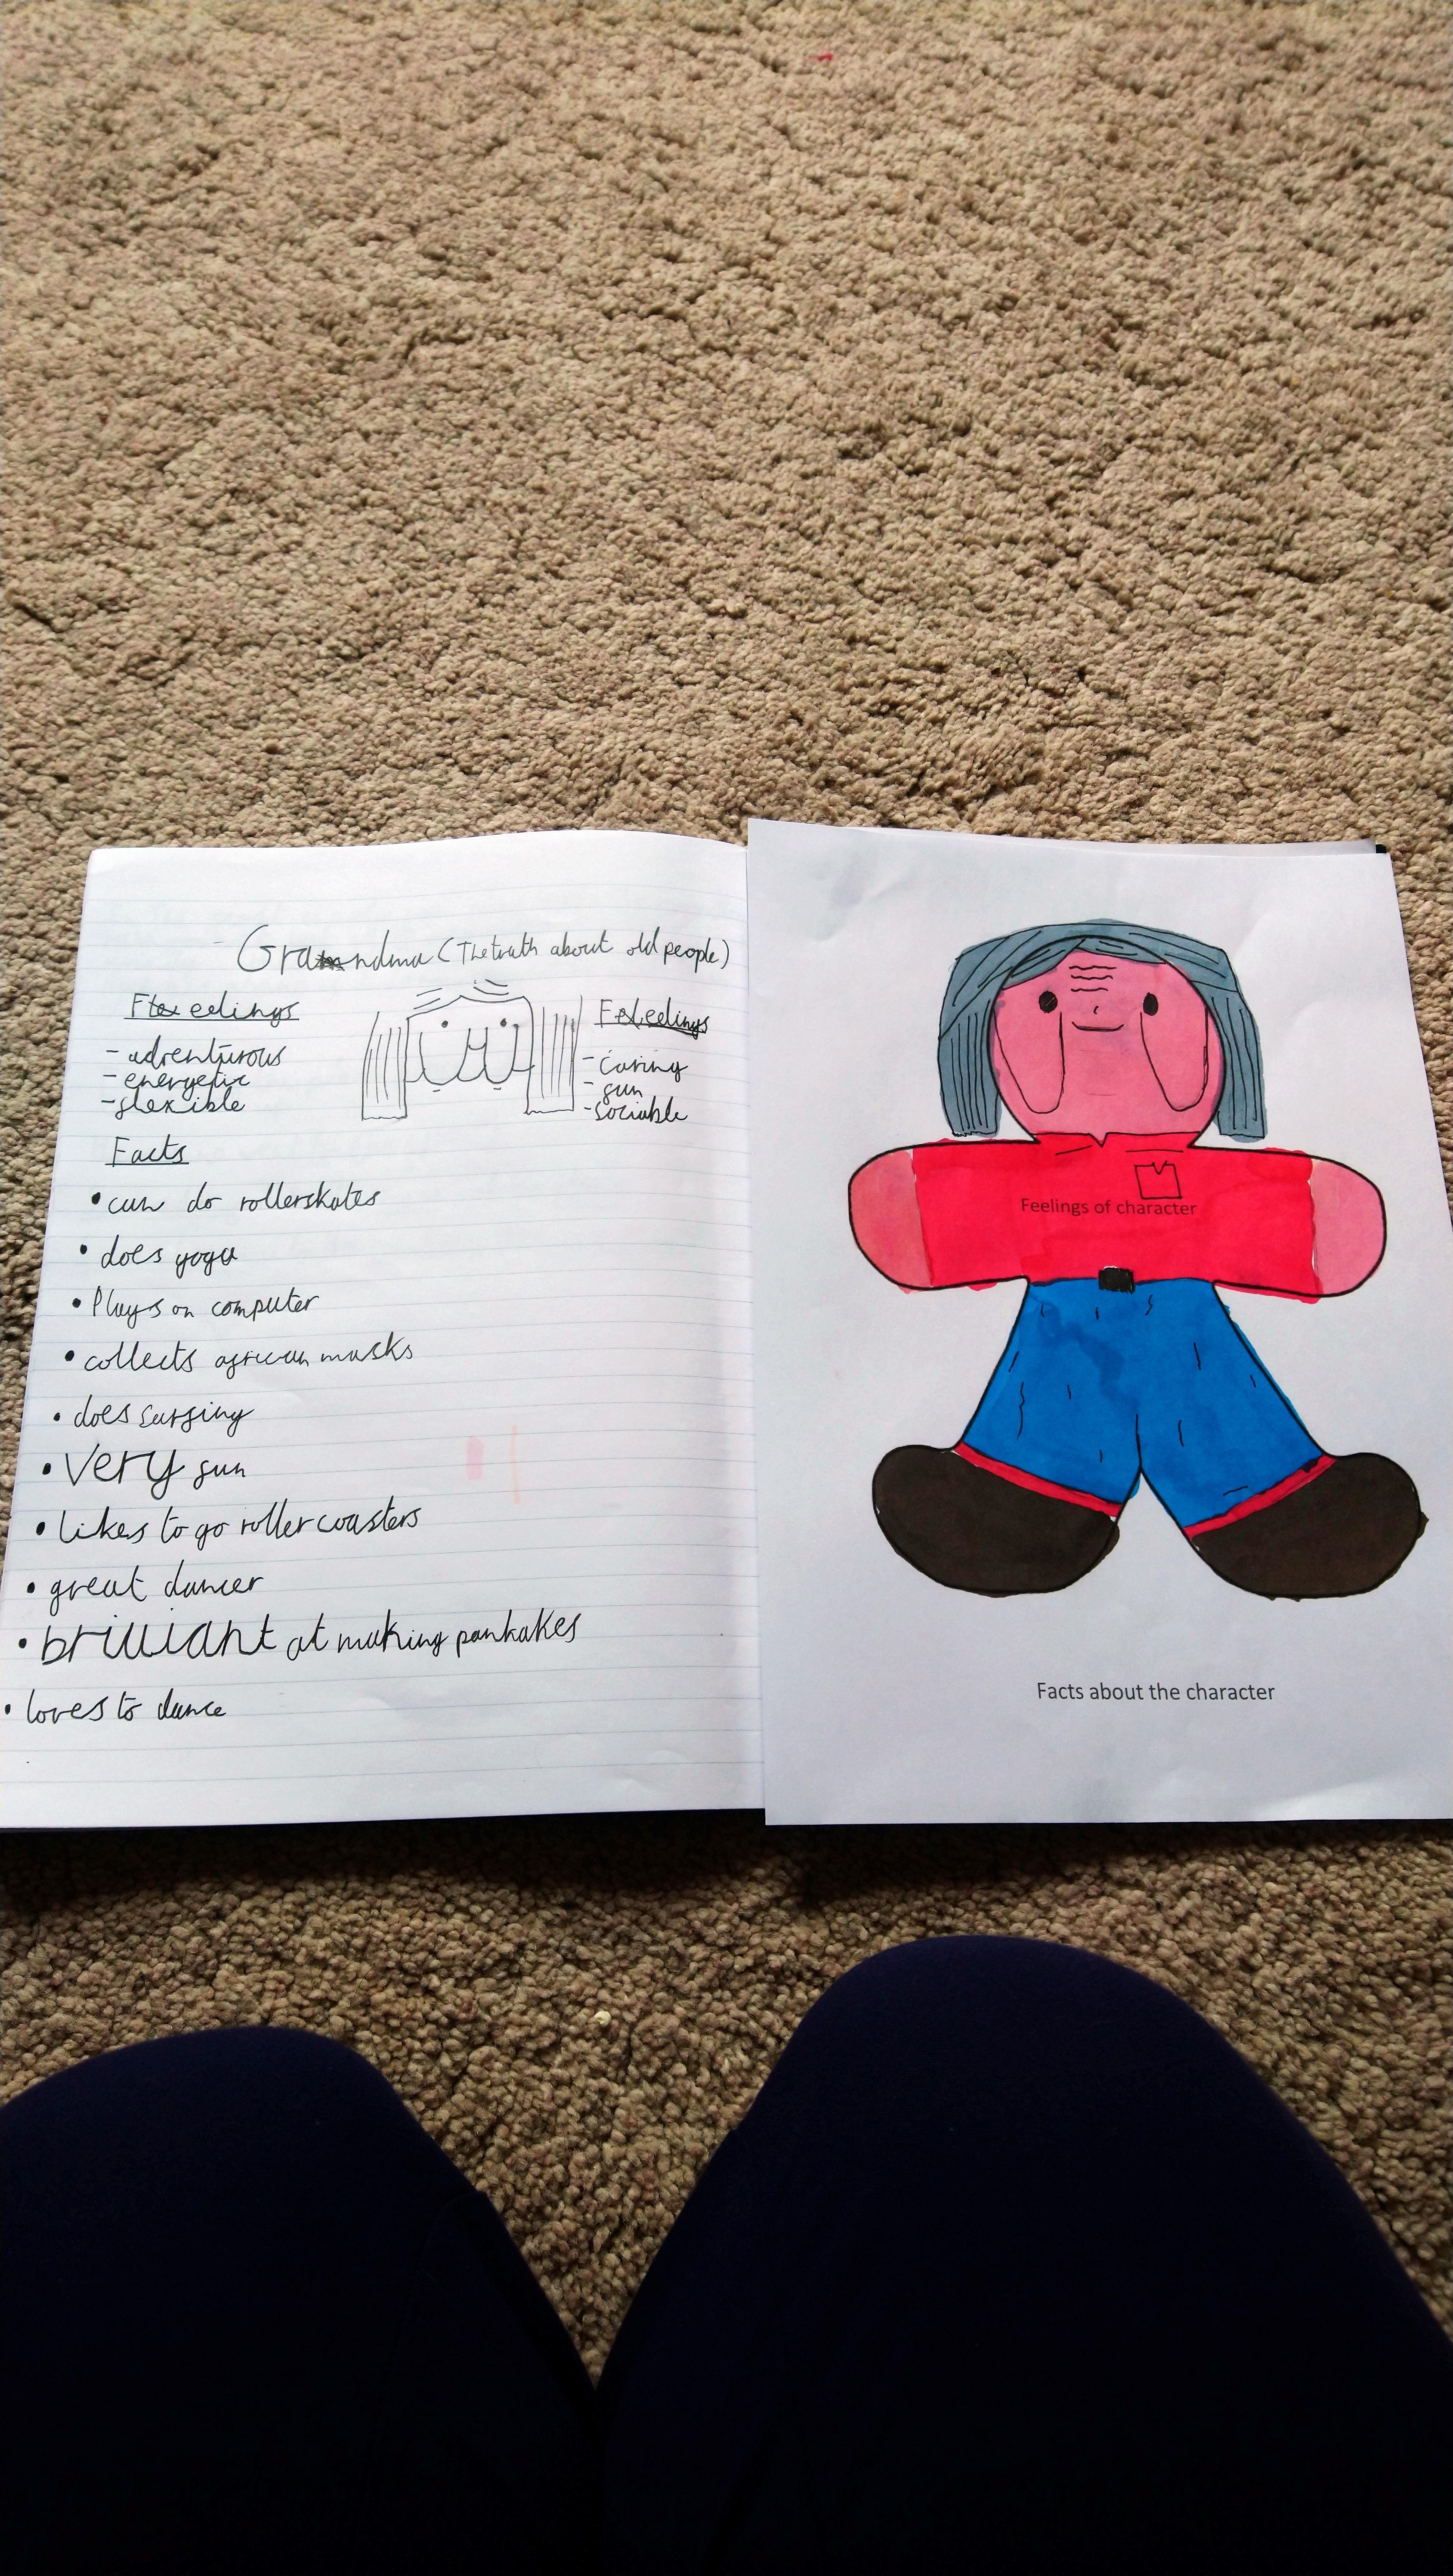 Grandma (The truth about old people)
Feelings
- adventurous
- energetic
- flexible
Feelings
- caring
- fun
- sociable
Facts
• can do rollerskates
• does yoga
• Plays on computer
• collects african masks
• does surfing
• very fun
• likes to go roller coasters
• great dancer
• brilliant at making pankakes
• loves to dance
Feelings of character
Facts about the character